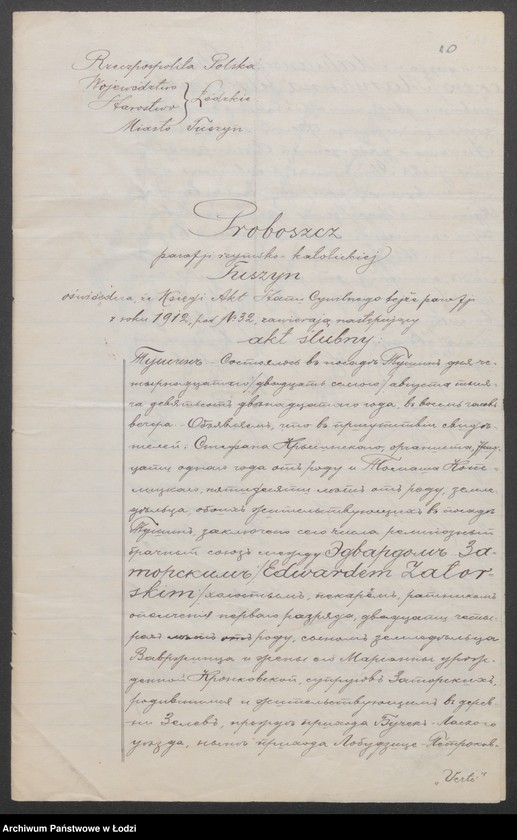 10
Rzeczpospolita Polska
Województwo
Starostwo } Łódzkie.
Miasto Tuszyn.
Proboszcz
parafji rzymsko-katolickiej
Tuszyn
oświadcza, iż Księgi Akt Stanu Cywilnego tejże parafji
z roku 1912, pod № 32, zawierają następujący
akt ślubny:
Тушинъ. Состоялось въ посадѣ Тушинѣ дня че-
тырнадцатаго /двадцать седьмаго/ августа тыся-
ча девятьсотъ двѣнадцатаго года, въ восемь часовъ
вечера. Объявляемъ, что въ присутствіи свидѣ-
телей: Стефана органиста,
цати одного года отъ роду и Томаша
пятидесяти лѣтъ отъ роду, земле-
дѣльца, обоихъ жительствующихъ въ посадѣ
Тушинѣ, заключенъ сего числа религіозный
брачный союзъ между Эдвардомъ За-
торскимъ /Edwardem Zator-
skim/ холостымъ, пекаремъ, ратникомъ
ополченія перваго разряда, двадцати четы-
рехъ лѣтъ отъ роду, сыномъ земледѣльца
Вавржинца и жены его Маріанны урож-
денной Кронковской, супруговъ Заторскихъ,
родившимся и жительствующимъ въ дерев-
нѣ Зелевъ, прежде прихода Бучекъ Ласкаго
уѣзда, нынѣ прихода Лобудзице Петроков-
"Verte"
Archiwum Państwowe w Łodzi